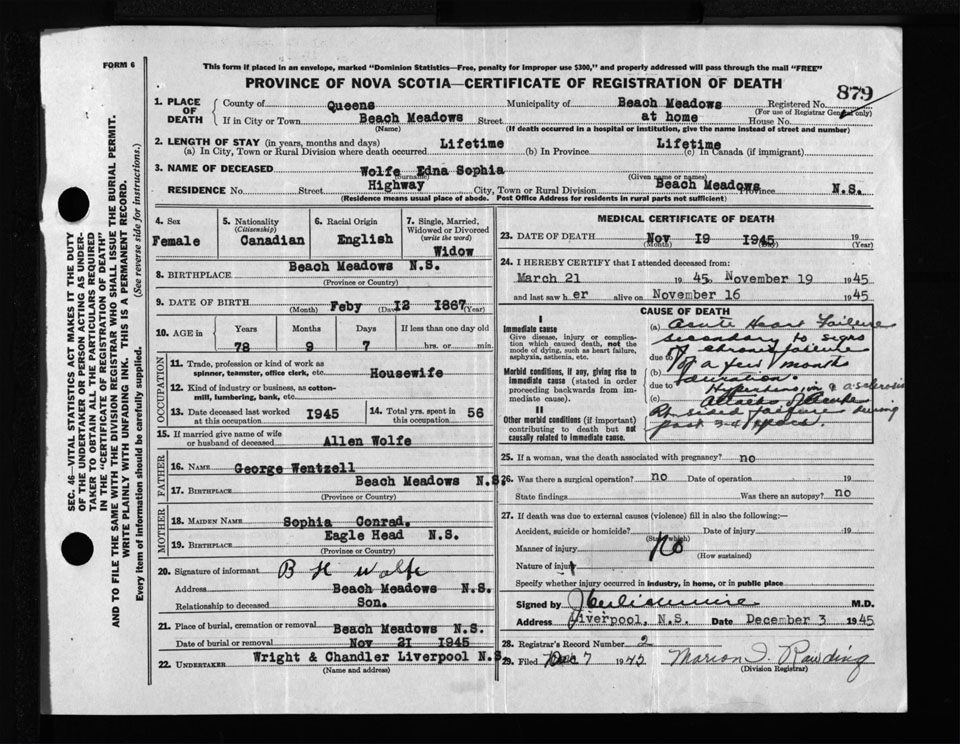 FORM 6
This form if placed in an envelope, marked "Dominion Statistics—Free, penalty for improper use $300," and properly addressed will pass through the mail "FREE"
PROVINCE OF NOVA SCOTIA—CERTIFICATE OF REGISTRATION OF DEATH
879
SEC. 46—VITAL STATISTICS ACT MAKES IT THE DUTY
OF THE UNDERTAKER OR PERSON ACTING AS UNDER-
TAKER TO OBTAIN ALL THE PARTICULARS REQUIRED
IN THE "CERTIFICATE OF REGISTRATION OF DEATH"
AND TO FILE THE SAME WITH THE DIVISION REGISTRAR WHO SHALL ISSUE THE BURIAL PERMIT.
WRITE PLAINLY WITH UNFADING INK. THIS IS A PERMANENT RECORD.
Every item of information should be carefully supplied. (See reverse side for instructions.)
1. PLACE OF DEATH
County of Queens Municipality of Beach Meadows Registered No.
(For use of Registrar General only)
If in City or Town Beach Meadows Street at home House No.
(Name) (If death occurred in a hospital or institution, give the name instead of street and number)
2. LENGTH OF STAY (in years, months and days) Lifetime Lifetime
(a) In City, Town or Rural Division where death occurred (b) In Province (c) In Canada (if immigrant)
3. NAME OF DECEASED Wolfe Edna Sophia
(Surname) (Given name or names)
RESIDENCE No. Street Highway City, Town or Rural Division Beach Meadows Province N.S.
(Residence means usual place of abode. Post Office Address for residents in rural parts not sufficient)
4. Sex
Female
5. Nationality
(Citizenship)
Canadian
6. Racial Origin
English
7. Single, Married, Widowed or Divorced
(write the word)
Widow
8. BIRTHPLACE Beach Meadows N.S.
(Province or Country)
9. DATE OF BIRTH Feby 12 1867
(Month) (Day) (Year)
10. AGE in Years Months Days If less than one day old
78 9 7 hrs. or min.
OCCUPATION
11. Trade, profession or kind of work as
spinner, teamster, office clerk, etc. Housewife
12. Kind of industry or business, as cotton-
mill, lumbering, bank, etc.
13. Date deceased last worked at this occupation 1945
14. Total yrs. spent in this occupation 56
15. If married give name of wife or husband of deceased Allen Wolfe
FATHER
16. NAME George Wentzell
17. BIRTHPLACE Beach Meadows N.S.
(Province or Country)
MOTHER
18. MAIDEN NAME Sophia Conrad.
19. BIRTHPLACE Eagle Head N.S.
(Province or Country)
20. Signature of informant B H Wolfe
Address Beach Meadows N.S.
Relationship to deceased Son.
21. Place of burial, cremation or removal Beach Meadows N.S.
Date of burial or removal Nov 21 1945
22. UNDERTAKER Wright & Chandler Liverpool N.S.
(Name and address)
MEDICAL CERTIFICATE OF DEATH
23. DATE OF DEATH Nov 19 1945 19
(Month) (Day) (Year)
24. I HEREBY CERTIFY that I attended deceased from:
March 21 1945 November 19 1945
and last saw her alive on November 16 1945
CAUSE OF DEATH
I
Immediate cause
Give disease, injury or complica-
tion which caused death, not the
mode of dying, such as heart failure,
asphyxia, asthenia, etc.
Morbid conditions, if any, giving rise to
immediate cause (stated in order
proceeding backwards from im-
mediate cause).
II
Other morbid conditions (if important)
contributing to death but not
causally related to immediate cause.
(a) Acute Heart Failure
secondary to signs
due to of chronic failure
(b) of a few months
duration.
due to Hypertension & a. sclerosis
(c) attacks of
Rt. sided failure during
past 3-4 years.
25. If a woman, was the death associated with pregnancy? no
26. Was there a surgical operation? no Date of operation 19
State findings Was there an autopsy? no
27. If death was due to external causes (violence) fill in also the following:—
Accident, suicide or homicide? Date of injury 19
(State which)
Manner of injury No
(How sustained)
Nature of injury
Specify whether injury occurred in industry, in home, or in public place
Signed by M.D.
Address Liverpool, N.S. Date December 3 1945
28. Registrar's Record Number 2
29. Filed Dec 7 1945 Marion I. Rawding
(Division Registrar)